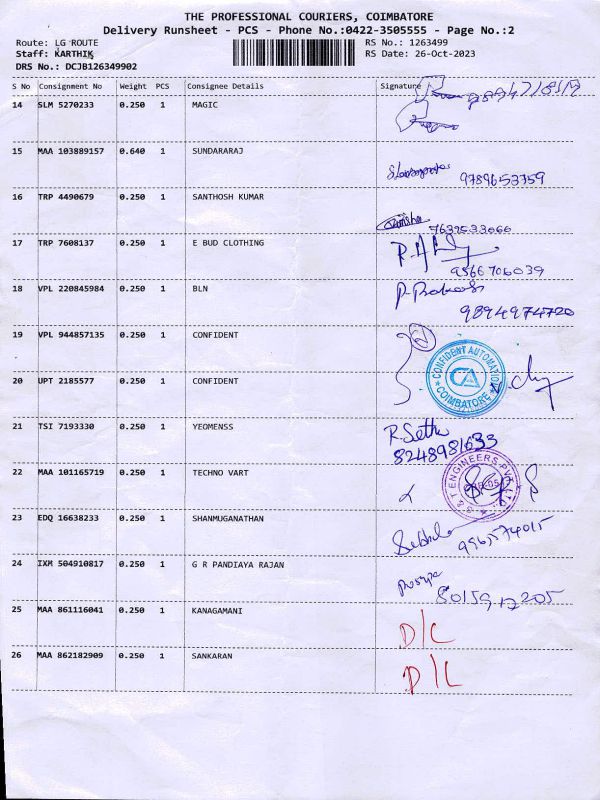 THE PROFESSIONAL COURIERS, COIMBATORE
Delivery Runsheet - PCS - Phone No.:0422-3505555 - Page No.:2
Route: LG ROUTE
RS No.: 1263499
Staff: KARTHIK
RS Date: 26-Oct-2023
DRS No.: DCJB126349902
S No Consignment No Weight PCS Consignee Details Signature
14 SLM 5270233 0.250 1 MAGIC
15 MAA 103889157 0.640 1 SUNDARARAJ
9789653759
16 TRP 4490679 0.250 1 SANTHOSH KUMAR
7639533066
17 TRP 7608137 0.250 1 E BUD CLOTHING
9566706039
18 VPL 220845984 0.250 1 BLN
P. Prakash
9894974720
19 VPL 944857135 0.250 1 CONFIDENT
2
CONFIDENT AUTOMATION
CA
COIMBATORE
20 UPT 2185577 0.250 1 CONFIDENT
21 TSI 7193330 0.250 1 YEOMENSS
R. Sethu
8248981633
22 MAA 101165719 0.250 1 TECHNO VART
S & T ENGINEERS PVT. LTD.
23 EDQ 16638233 0.250 1 SHANMUGANATHAN
9965574015
24 IXM 504910817 0.250 1 G R PANDIAYA RAJAN
25 MAA 861116041 0.250 1 KANAGAMANI
D/C
26 MAA 862182909 0.250 1 SANKARAN
D/L